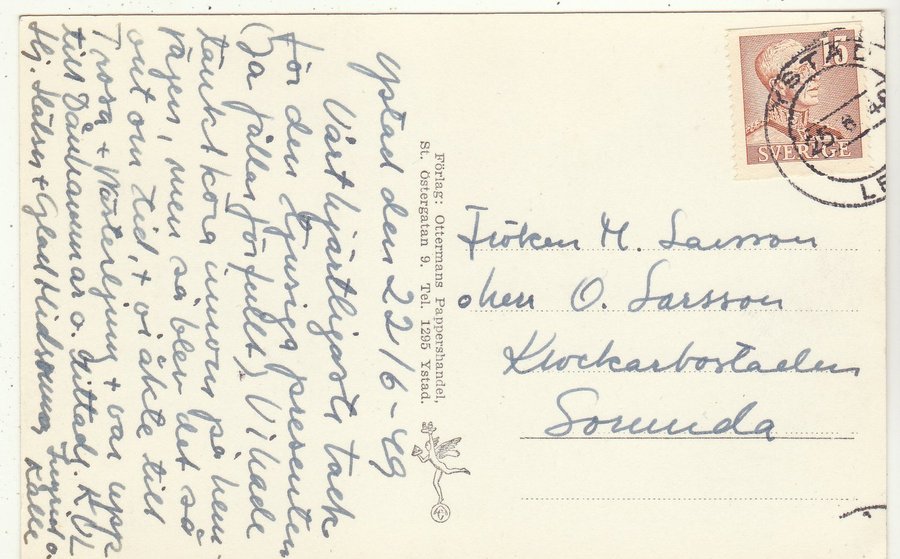 Ystad den 22/6-49
Vårt hjärtligaste tack
för den tjusiga presenten
(Ja fäller förfullt) Vi hade
tänkt köra innom på hem
vägen, men så blev det så
ont om tid, + vi åkte till
Trosa + Västerljung + var upp
till o. tittade. HÖL
Hj. Hälsn + Glad Midsomma
Ingrid o.
Kalle
Förlag: Ottermans Pappershandel,
St. Östergatan 9. Tel. 1295 Ystad.
15
SVERIGE
YSTAD
25 6 49
Fröken M. Larsson
o herr O. Larsson
Klockarbostaden
Sorunda